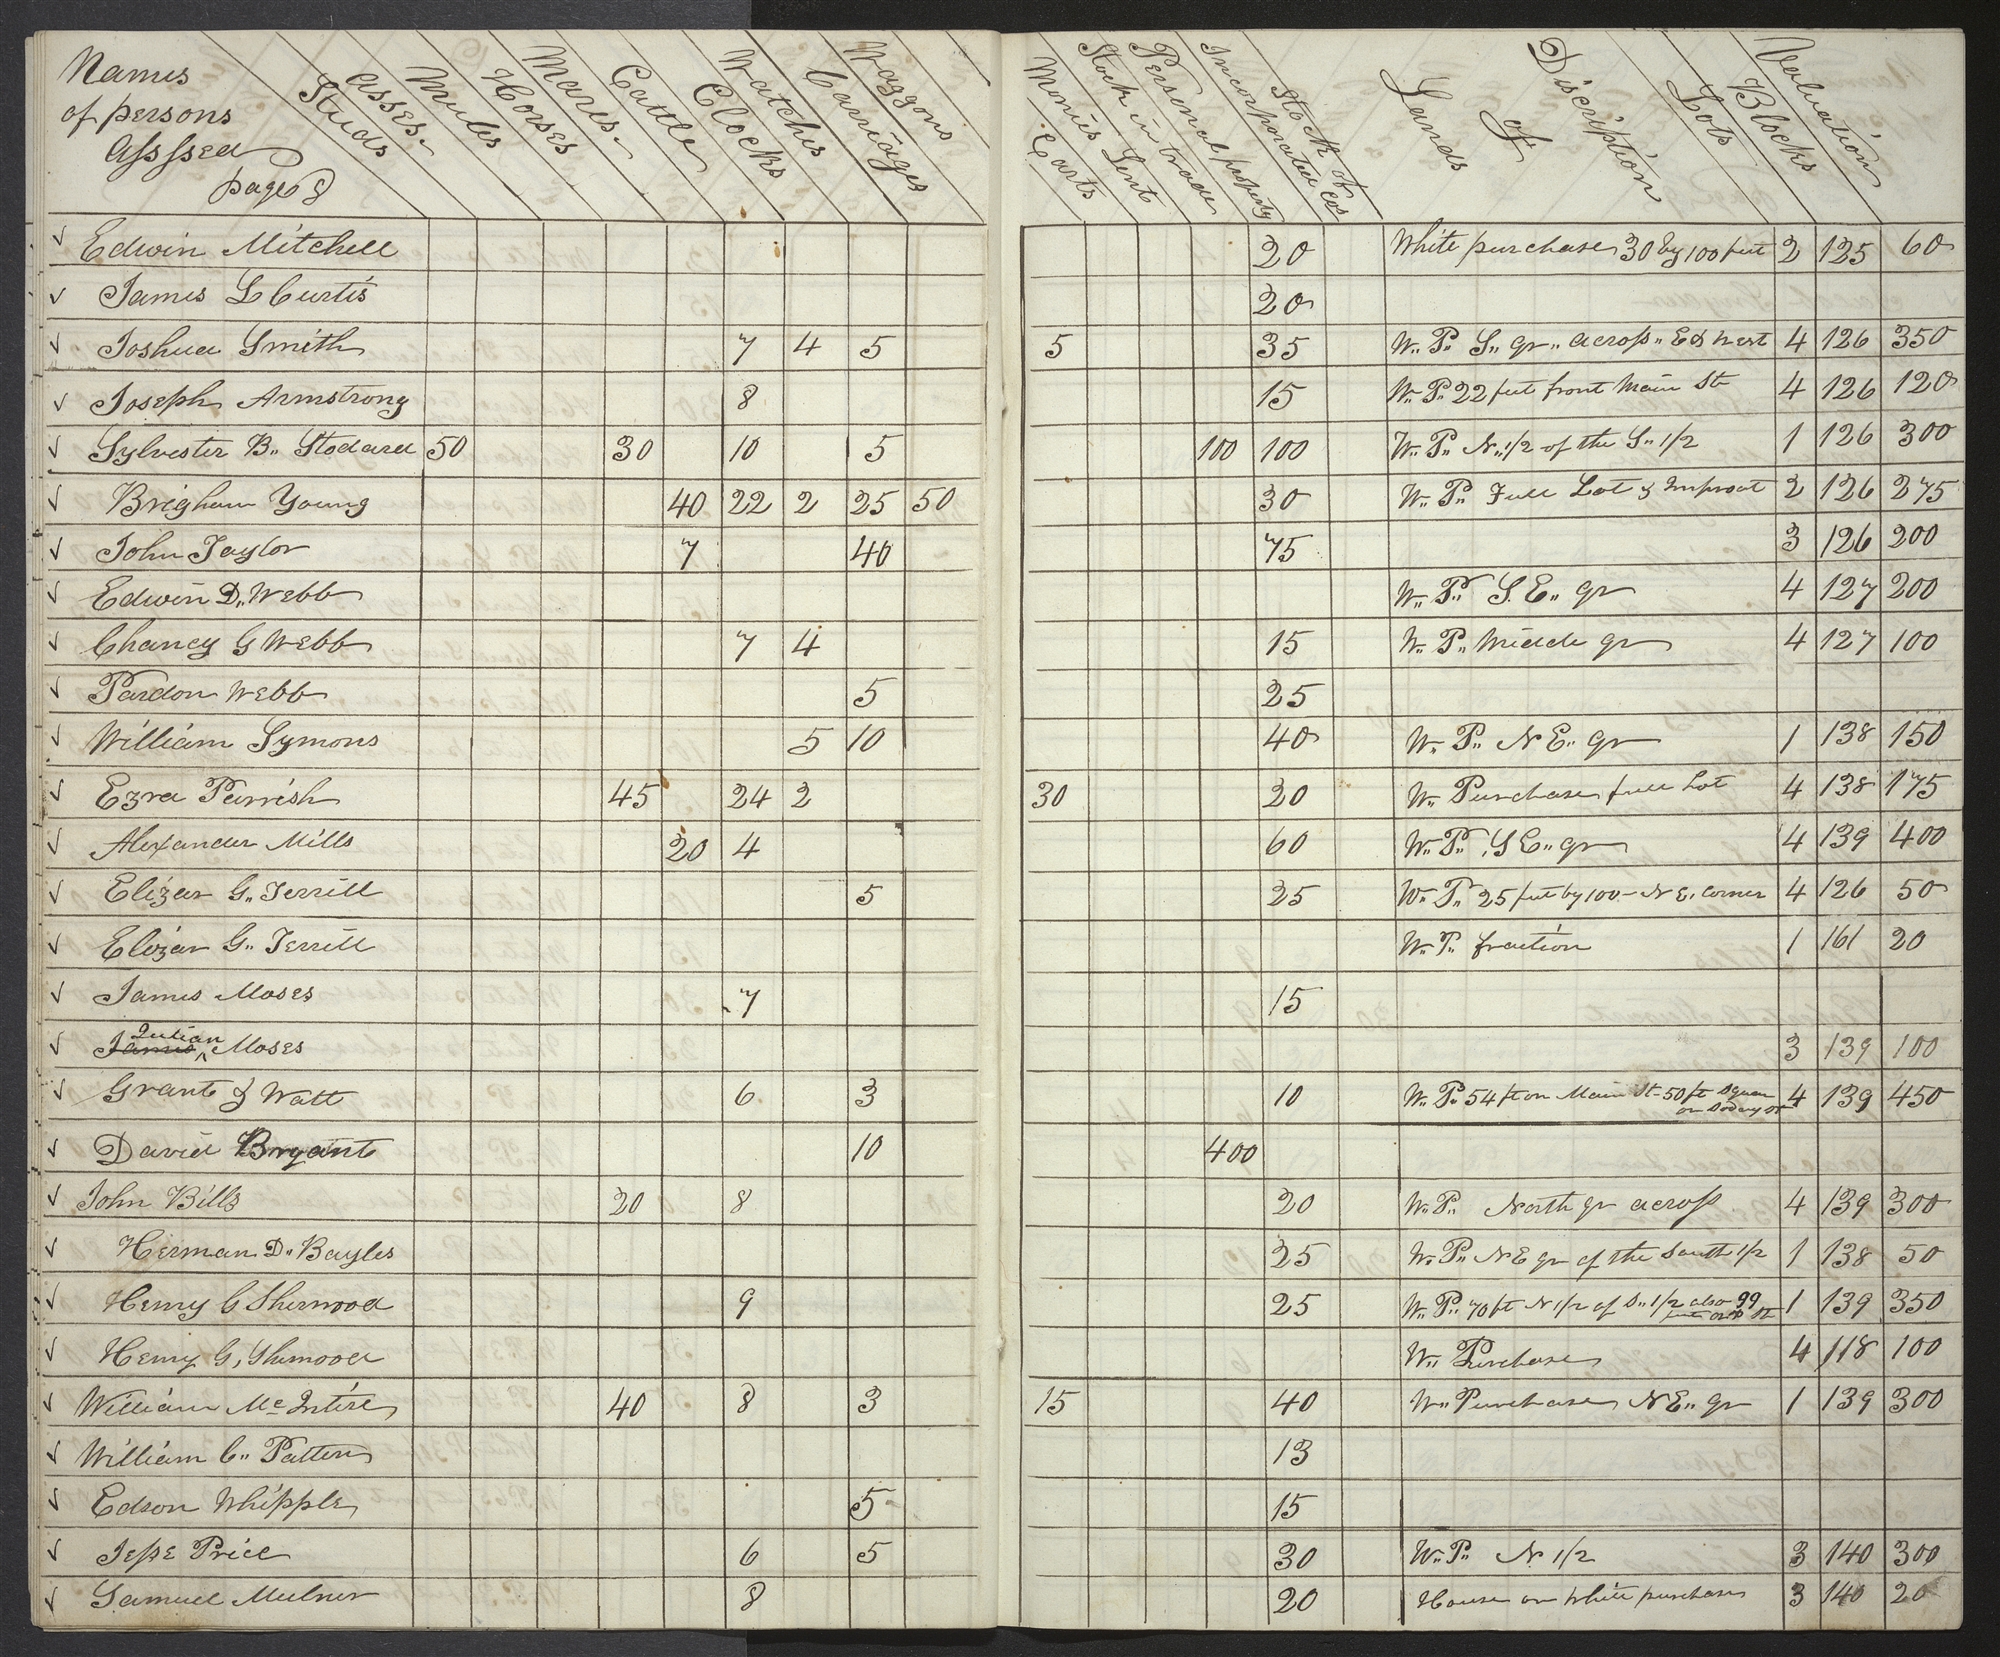 Names
of persons
Assssed
page 8
Studs
Asses.
Mules
Horses
Mares.
Cattle
Clocks
Watches
Carriages
Waggons
Carts
Monies Lent
Stock in trade
Personal property
Incorporated Cos
Stock of
Lands
of
Discription
Lots
Blocks
Valuation
Edwin Mitchell 20 White purchase 30 by 100 feet 2 125 60
James L Curtis 20
Joshua Smith 7 4 5 5 35 W. P. S. qr. across E & west 4 126 350
Joseph Armstrong 8 15 W. P. 22 feet front Main St 4 126 120
Sylvester B. Stodard 50 30 10 5 100 100 W. P. N. 1/2 of the S. 1/2 1 126 300
Brigham Young 40 22 2 25 50 30 W. P. Full Lot & Improvt 2 126 275
John Taylor 7 40 75 3 126 200
Edwin D. Webb W. P. S. E. qr 4 127 200
Chancy G Webb 7 4 15 W. P. Middle qr 4 127 100
Pardon Webb 5 25
William Symons 5 10 40 W. P. N E. qr 1 138 150
Ezra Parrish 45 24 2 30 20 W. Purchase full Lot 4 138 175
Alexander Mills 20 4 60 W. P. S E. qr 4 139 400
Elizar G. Terrill 5 25 W. P. 25 feet by 100 - N E. corner 4 126 50
Elizar G. Terrill W. P. fraction 1 161 20
James Moses 7 15
James Julian Moses 3 139 100
Grant & Watt 6 3 10 W. P. 54 ft on Main St - 50 ft Square on St 4 139 450
David Bryant 10 400
John Bills 20 8 20 W. P. North qr across 4 139 300
Herman D. Bayles 25 W. P. N E qr of the South 1/2 1 138 50
Henry G Sherwood 9 25 W. P. 70 ft N 1/2 of S. 1/2 also 99 feet on St 1 139 350
Henry G, Sherwood W. Purchase 4 118 100
William McIntire 40 8 3 15 40 W. Purchase N E. qr 1 139 300
William C. Patten 13
Edson Whipple 5 15
Jesse Price 6 5 30 W. P. N 1/2 3 140 300
Samuel Mulner 8 20 House on White purchase 3 140 20